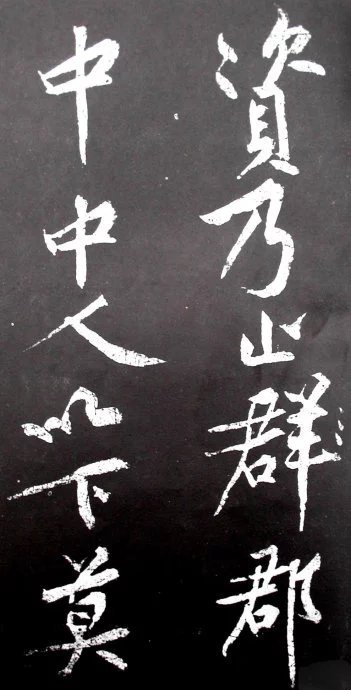 資乃出群郡
中中人以下莫